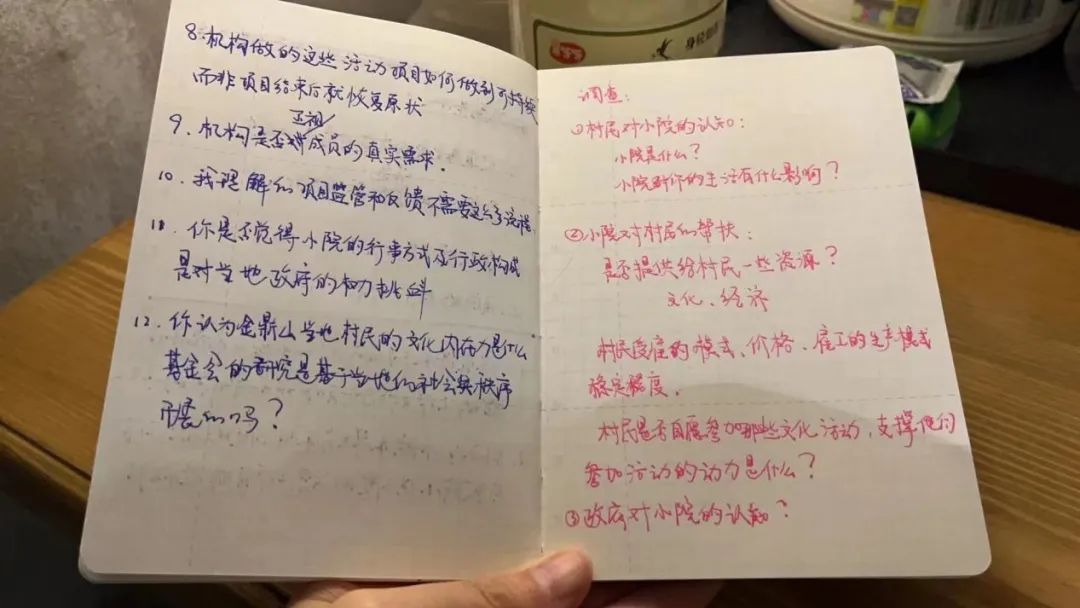 8. 机构做的这些活动项目如何做到可持续
而非项目结束后就恢复原状
正视
9. 机构是否成员的真实需求.
10. 我理解的项目监管和反馈不需要这么多流程
11. 你是否觉得小院的行事方式及行政构成
是对当地政府的权力挑衅
12. 你认为金鼎山当地村民的文化内在力是什么
基金会的研究是基于当地的社会秩序
而来的吗?
调查:
①村民对小院的认知:
小院是什么?
小院对你的生活有什么影响?
②小院对村居的帮扶:
是否提供给村民一些资源?
文化、经济
村民受雇的模式、价格、雇工的生产模式
稳定程度.
村民是否自愿参加那些文化活动, 支撑他们
参加活动的动力是什么?
③政府对小院的认知?